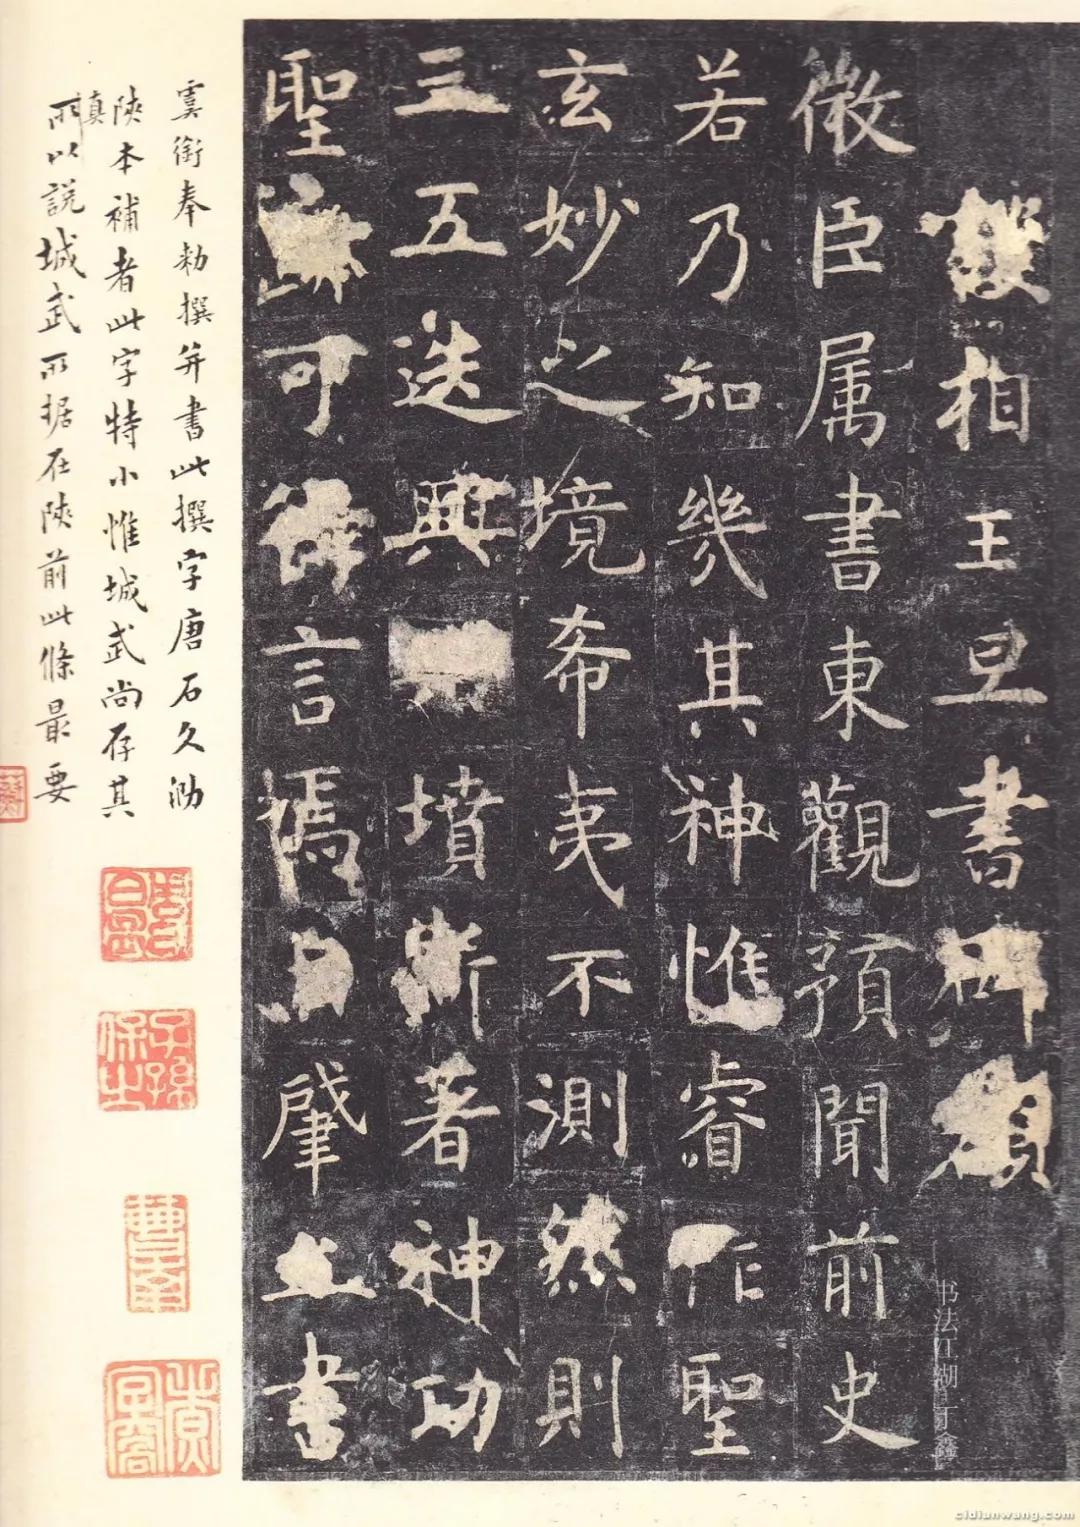 撰
相王旦書碑額
微臣属書東觀預聞前史
若乃知幾其神惟睿作聖
玄妙之境希夷不測然則
三五迭興墳斯著神功
聖跡可得言焉自肇立書
虞銜奉勅撰并書此撰字唐石久泐
陝本補者此字特小惟城武尚存其
真所以說城武所据在陝前此條最要
子孫保之
书法江湖 丁鑫
cidianwang.com